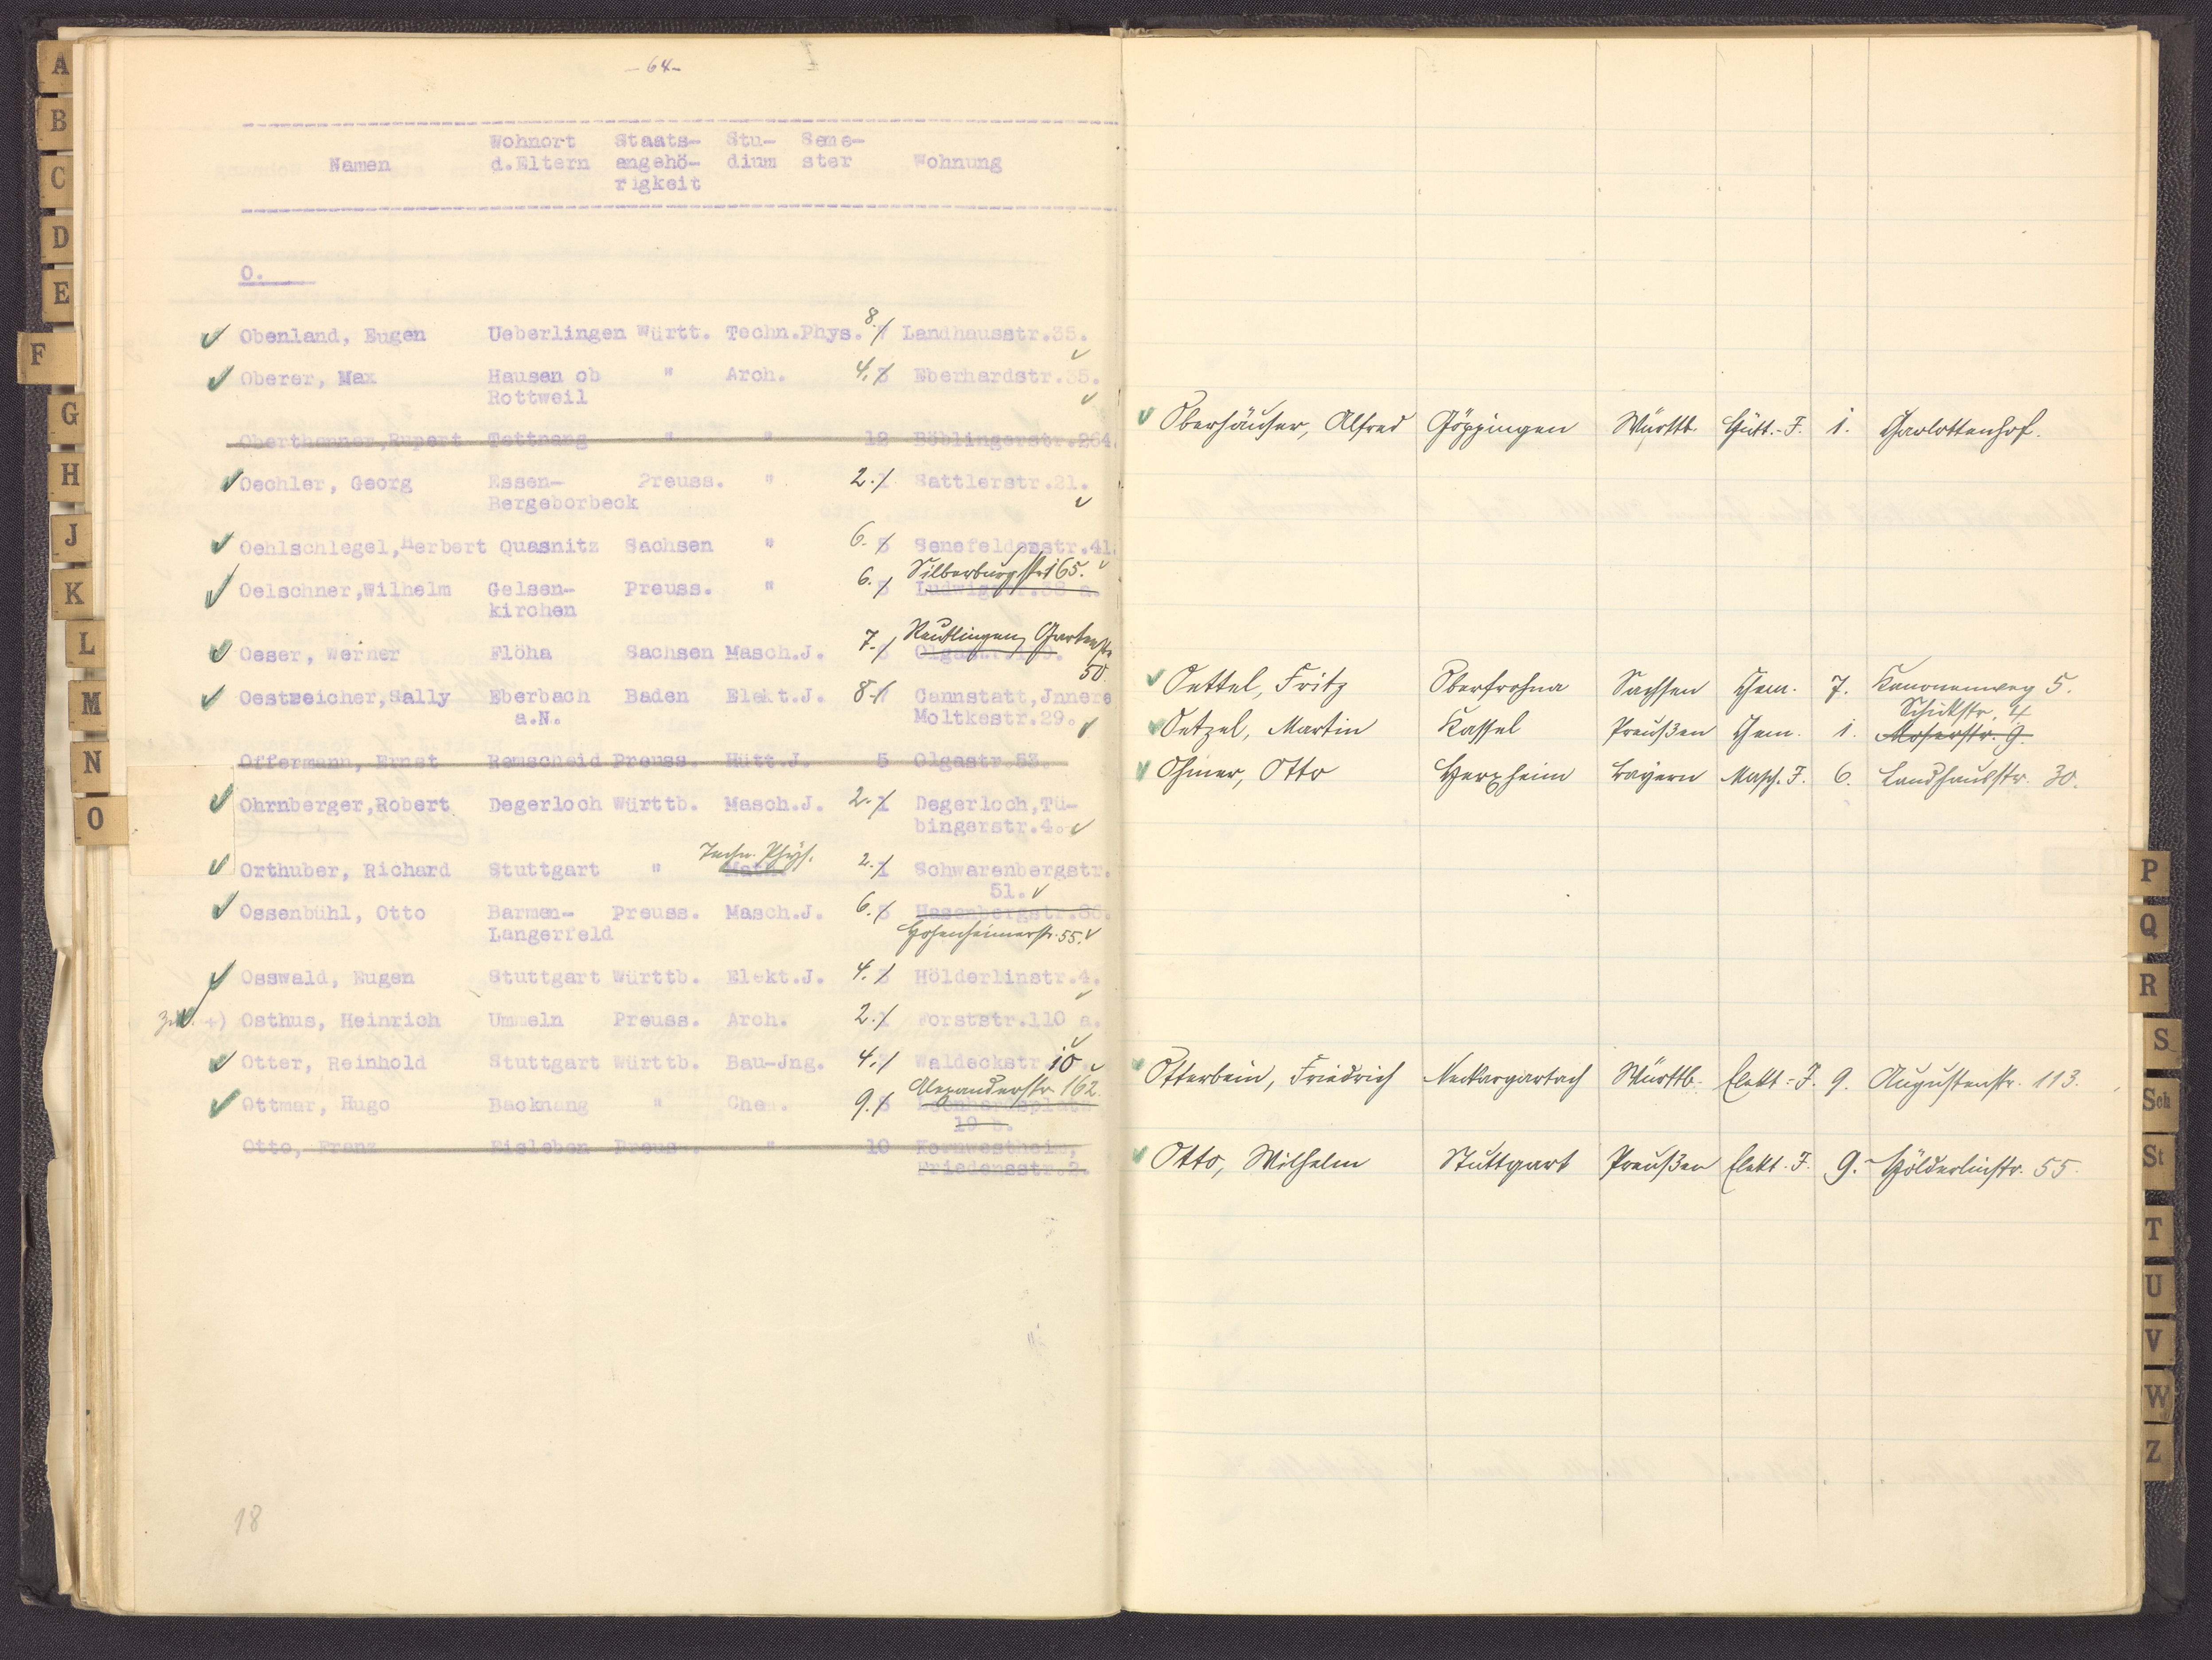 - 64 -
Wohnort Staats- Stu- Seme-
Namen d.Eltern angehö- dium ster Wohnung
rigkeit
O.
Obenland, Eugen Ueberlingen Württ. Techn.Phys. 8. Landhausstr.35.
Oberer, Max Hausen ob " Arch. 4. 3 Eberhardstr.35.
Rottweil
Oberthanner,Rupert Tettnang " " 12 Böblingerstr.264.
Oechler, Georg Essen- Preuss. " 2. 1 Sattlerstr.21.
Bergeborbeck
Oehlschlegel,Herbert Quasnitz Sachsen " 6. 5 Senefelderstr.41.
Silberburgstr. 165.
Oelschner,Wilhelm Gelsen- Preuss. " 6. Ludwigstr.38 a.
kirchen
Reutlingen, Gartenstr.
Oeser, Werner Flöha Sachsen Masch.J. 7. Olgastr.
50.
Oestreicher,Sally Eberbach Baden Elekt.J. 8. 7 Cannstatt,Jnnere
a.N. Moltkestr.29.
Offermann, Ernst Remscheid Preuss. Hütt.J. 5 Olgastr.53.
Ohrnberger,Robert Degerloch Württb. Masch.J. 2. 1 Degerloch,Tü-
bingerstr.4.
Techn. Phys.
Orthuber, Richard Stuttgart " Math. 2. 1 Schwarenbergstr.
51.
Ossenbühl, Otto Barmen- Preuss. Masch.J. 6. 5 Hasenbergstr.88.
Langerfeld Hohenheimerstr. 55.
Osswald, Eugen Stuttgart Württb. Elekt.J. 4. 3 Hölderlinstr.4.
+) Osthus, Heinrich Ummeln Preuss. Arch. 2. 1 Forststr.110 a.
Otter, Reinhold Stuttgart Württb. Bau-Jng. 4. Waldeckstr 10
Alexanderstr. 162.
Ottmar, Hugo Backnang " Chem. 9. 8 Leonhardsplatz
19
Otto, Franz Eisleben Preuss. " 10 Kornwestheim,
Friedensstr.2.
18
Oberhäuser, Alfred Göppingen Württb. Hütt.-J. 1. Charlottenhof.
Oettel, Fritz Oberfrohna Sachsen Chem. 7. Kanonenweg 5.
Schickstr. 4
Oetzel, Martin Kassel Preußen Chem. 1. Moserstr. 9.
Ohmer, Otto Herxheim Bayern Masch.J. 6. Landhausstr. 30.
Otterbein, Friedrich Neckargartach Württb. Elekt.-J. 9. Augustenstr. 113.
Otto, Wilhelm Stuttgart Preußen Elekt.J. 9. Hölderlinstr. 55.
A
B
C
D
E
F
G
H
J
K
L
M
N
O
P
Q
R
S
Sch
St
T
U
V
W
Z